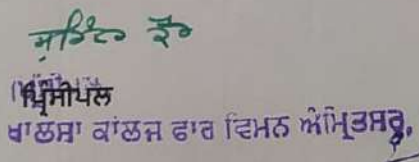 ਪ੍ਰਿੰਸੀਪਲ
ਖਾਲਸਾ ਕਾਲਜ ਫਾਰ ਵਿਮਨ ਅੰਮ੍ਰਿਤਸਰ,